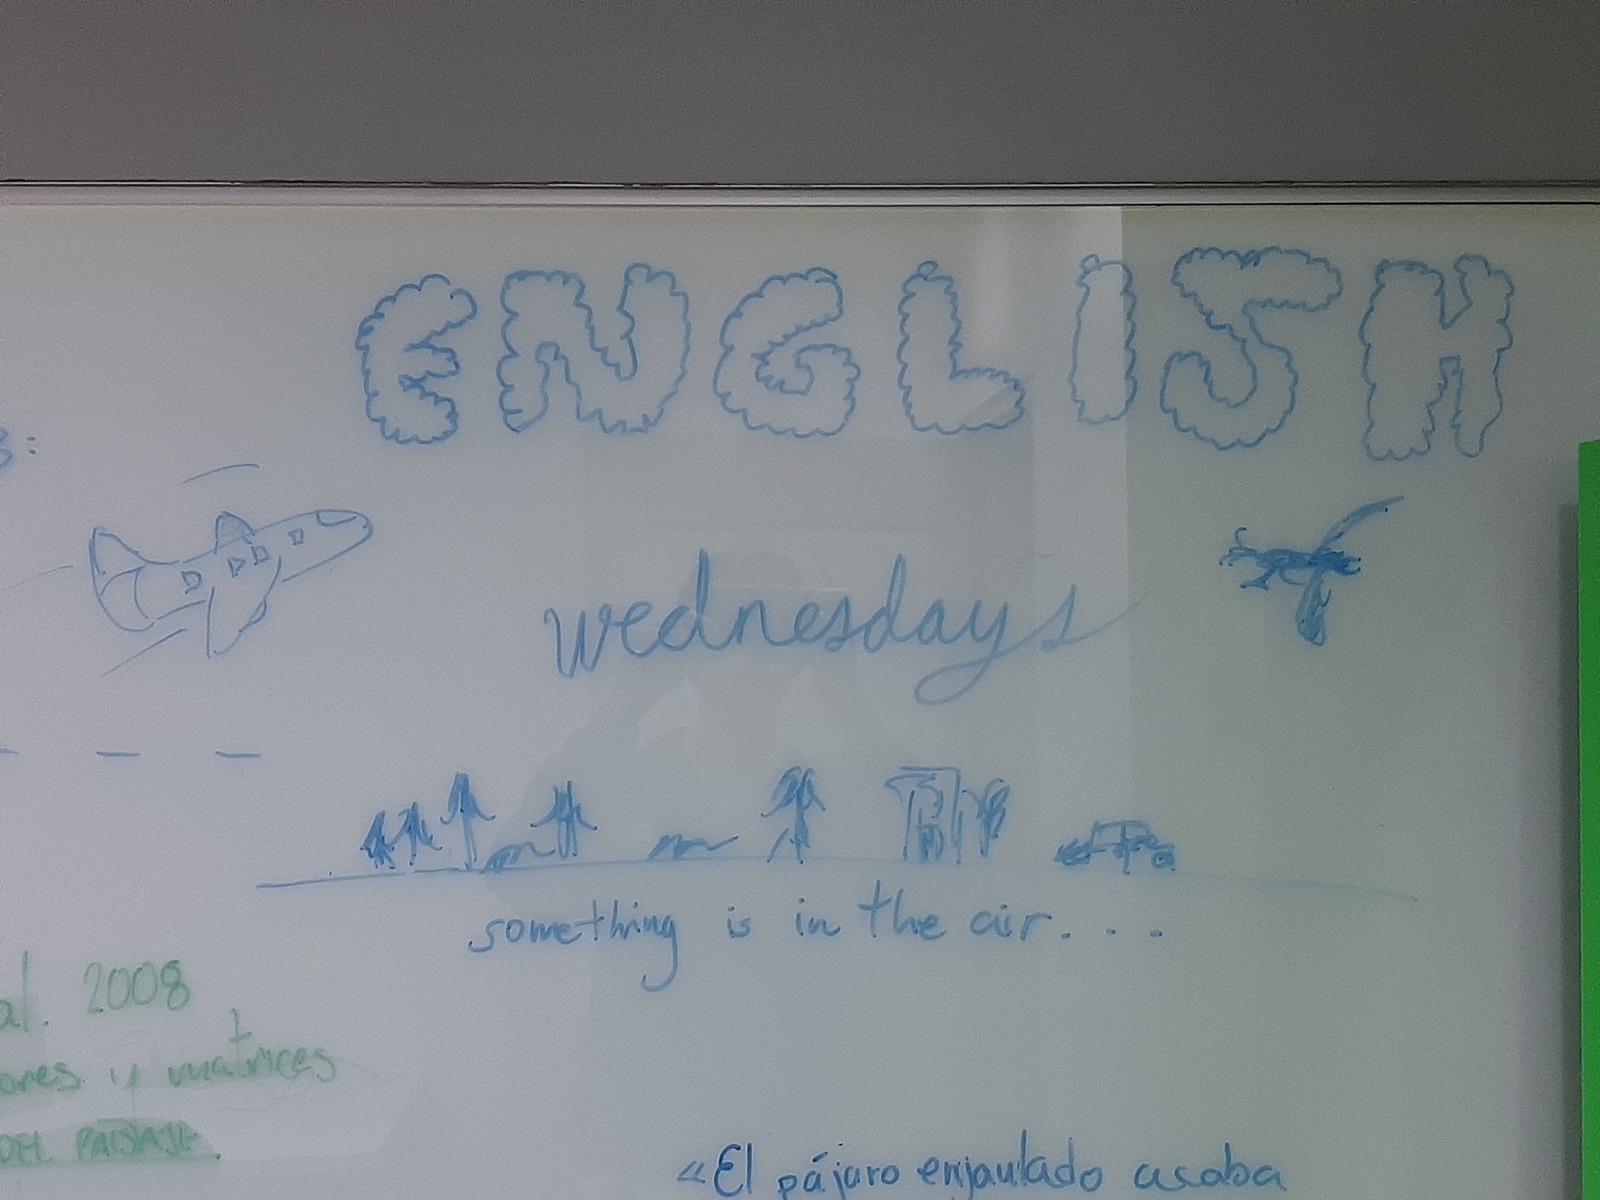 ENGLISH
wednesdays
something is in the air. . .
al. 2008
ores y matrices
DEL PAISAJE.
«El pájaro enjaulado acaba